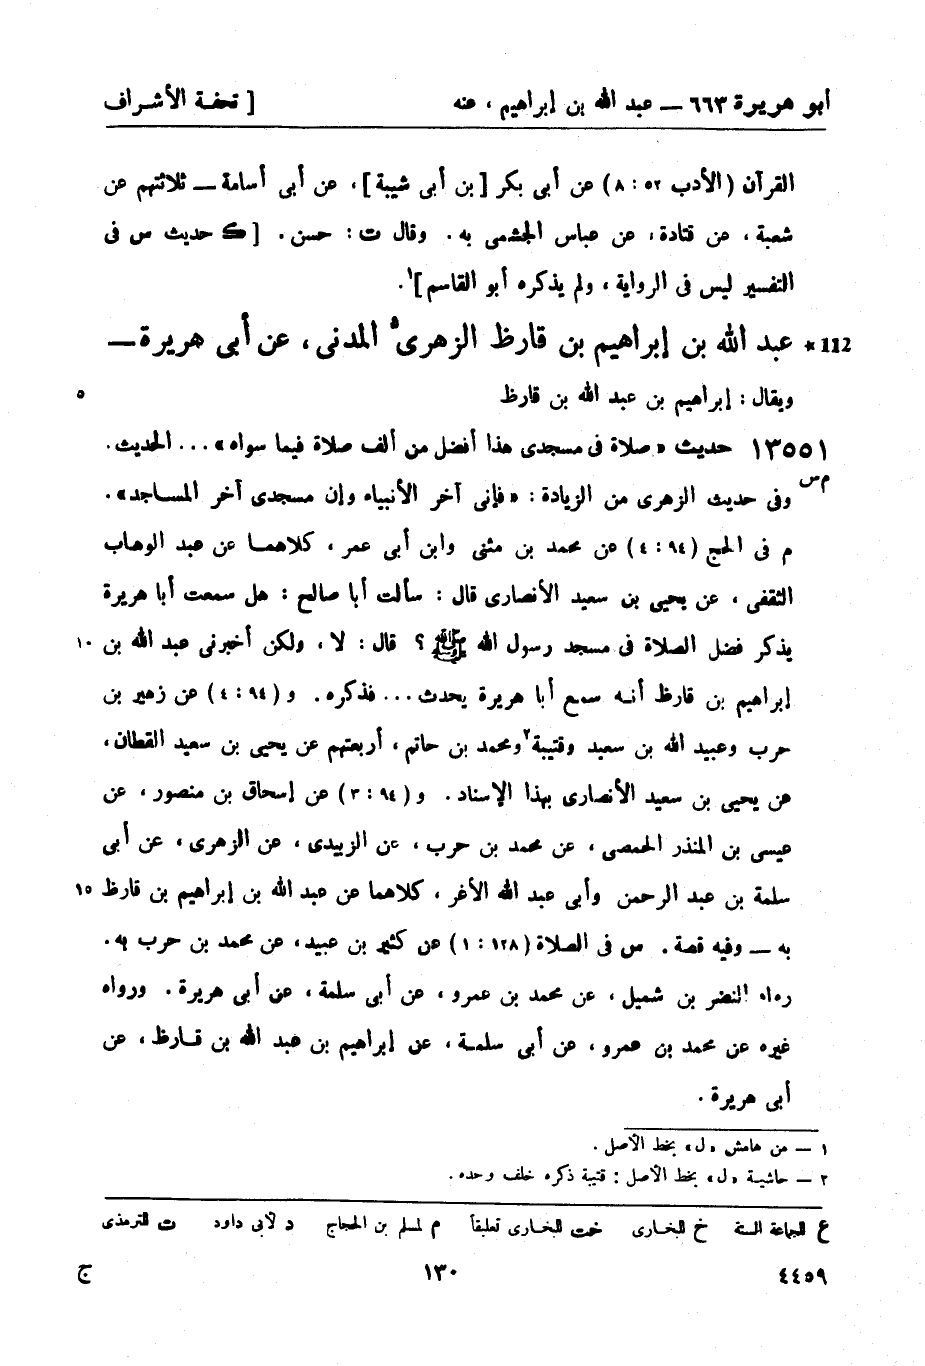 أبو هريرة ٦٦٣ — عبد الله بن إبراهيم ، عنه [ تحفة الأشراف
القرآن (الأدب ٥٢ : ٨) عن أبى بكر [بن أبى شيبة]، عن أبى أسامة — ثلاثتهم عن
شعبة ، عن قتادة، عن عباس الجشمى به . وقال ت: حسن . [ك حديث س فى
التفسير ليس فى الرواية ، ولم يذكره أبو القاسم]١.
112 * عبد الله بن إبراهيم بن قارظ الزهرى المدنى، عن أبى هريرة —
ويقال : إبراهيم بن عبد الله بن قارظ ٥
١٣٥٥١ حديث «صلاة فى مسجدى هذا أفضل من ألف صلاة فيما سواه» ... الحديث.
م س وفى حديث الزهرى من الزيادة : «فإنى آخر الأنبياء وإن مسجدى آخر المساجد».
م فى الحج (٩٤ : ٤) عن محمد بن مثنى وابن أبى عمر ، كلاهما عن عبد الوهاب
الثقفى ، عن يحيى بن سعيد الأنصارى قال : سألت أبا صالح : هل سمعت أبا هريرة
يذكر فضل الصلاة فى مسجد رسول الله ﷺ ؟ قال : لا ، ولكن أخبرنى عبد الله بن ١٠
إبراهيم بن قارظ أنه سمع أبا هريرة يحدث ... فذكره . و (٩٤ : ٤) عن زهير بن
حرب وعبيد الله بن سعيد وقتيبة٢ ومحمد بن حاتم ، أربعتهم عن يحيى بن سعيد القطان،
عن يحيى بن سعيد الأنصارى بهذا الإسناد . و (٩٤ : ٣) عن إسحاق بن منصور ، عن
عيسى بن المنذر الحمصى ، عن محمد بن حرب ، عن الزبيدى ، عن الزهرى ، عن أبى
سلمة بن عبد الرحمن وأبى عبد الله الأغر ، كلاهما عن عبد الله بن إبراهيم بن قارظ ١٥
به — وفيه قصة . س فى الصلاة (١٢٨ : ١) عن كثير بن عبيد، عن محمد بن حرب به .
رواه النضر بن شميل ، عن محمد بن عمرو ، عن أبى سلمة ، عن أبى هريرة . ورواه
غيره عن محمد بن عمرو ، عن أبى سلمة ، عن إبراهيم بن عبد الله بن قارظ ، عن
أبى هريرة .
١ — من هامش «ل» بخط الأصل .
٢ — حاشية «ل» بخط الأصل : قتيبة ذكره خلف وحده .
ع للجماعة الستة خ للبخارى خت للبخارى تعليقاً م لمسلم بن الحجاج د لأبى داود ت للترمذى
٤٤٥٩ ١٣٠ ج